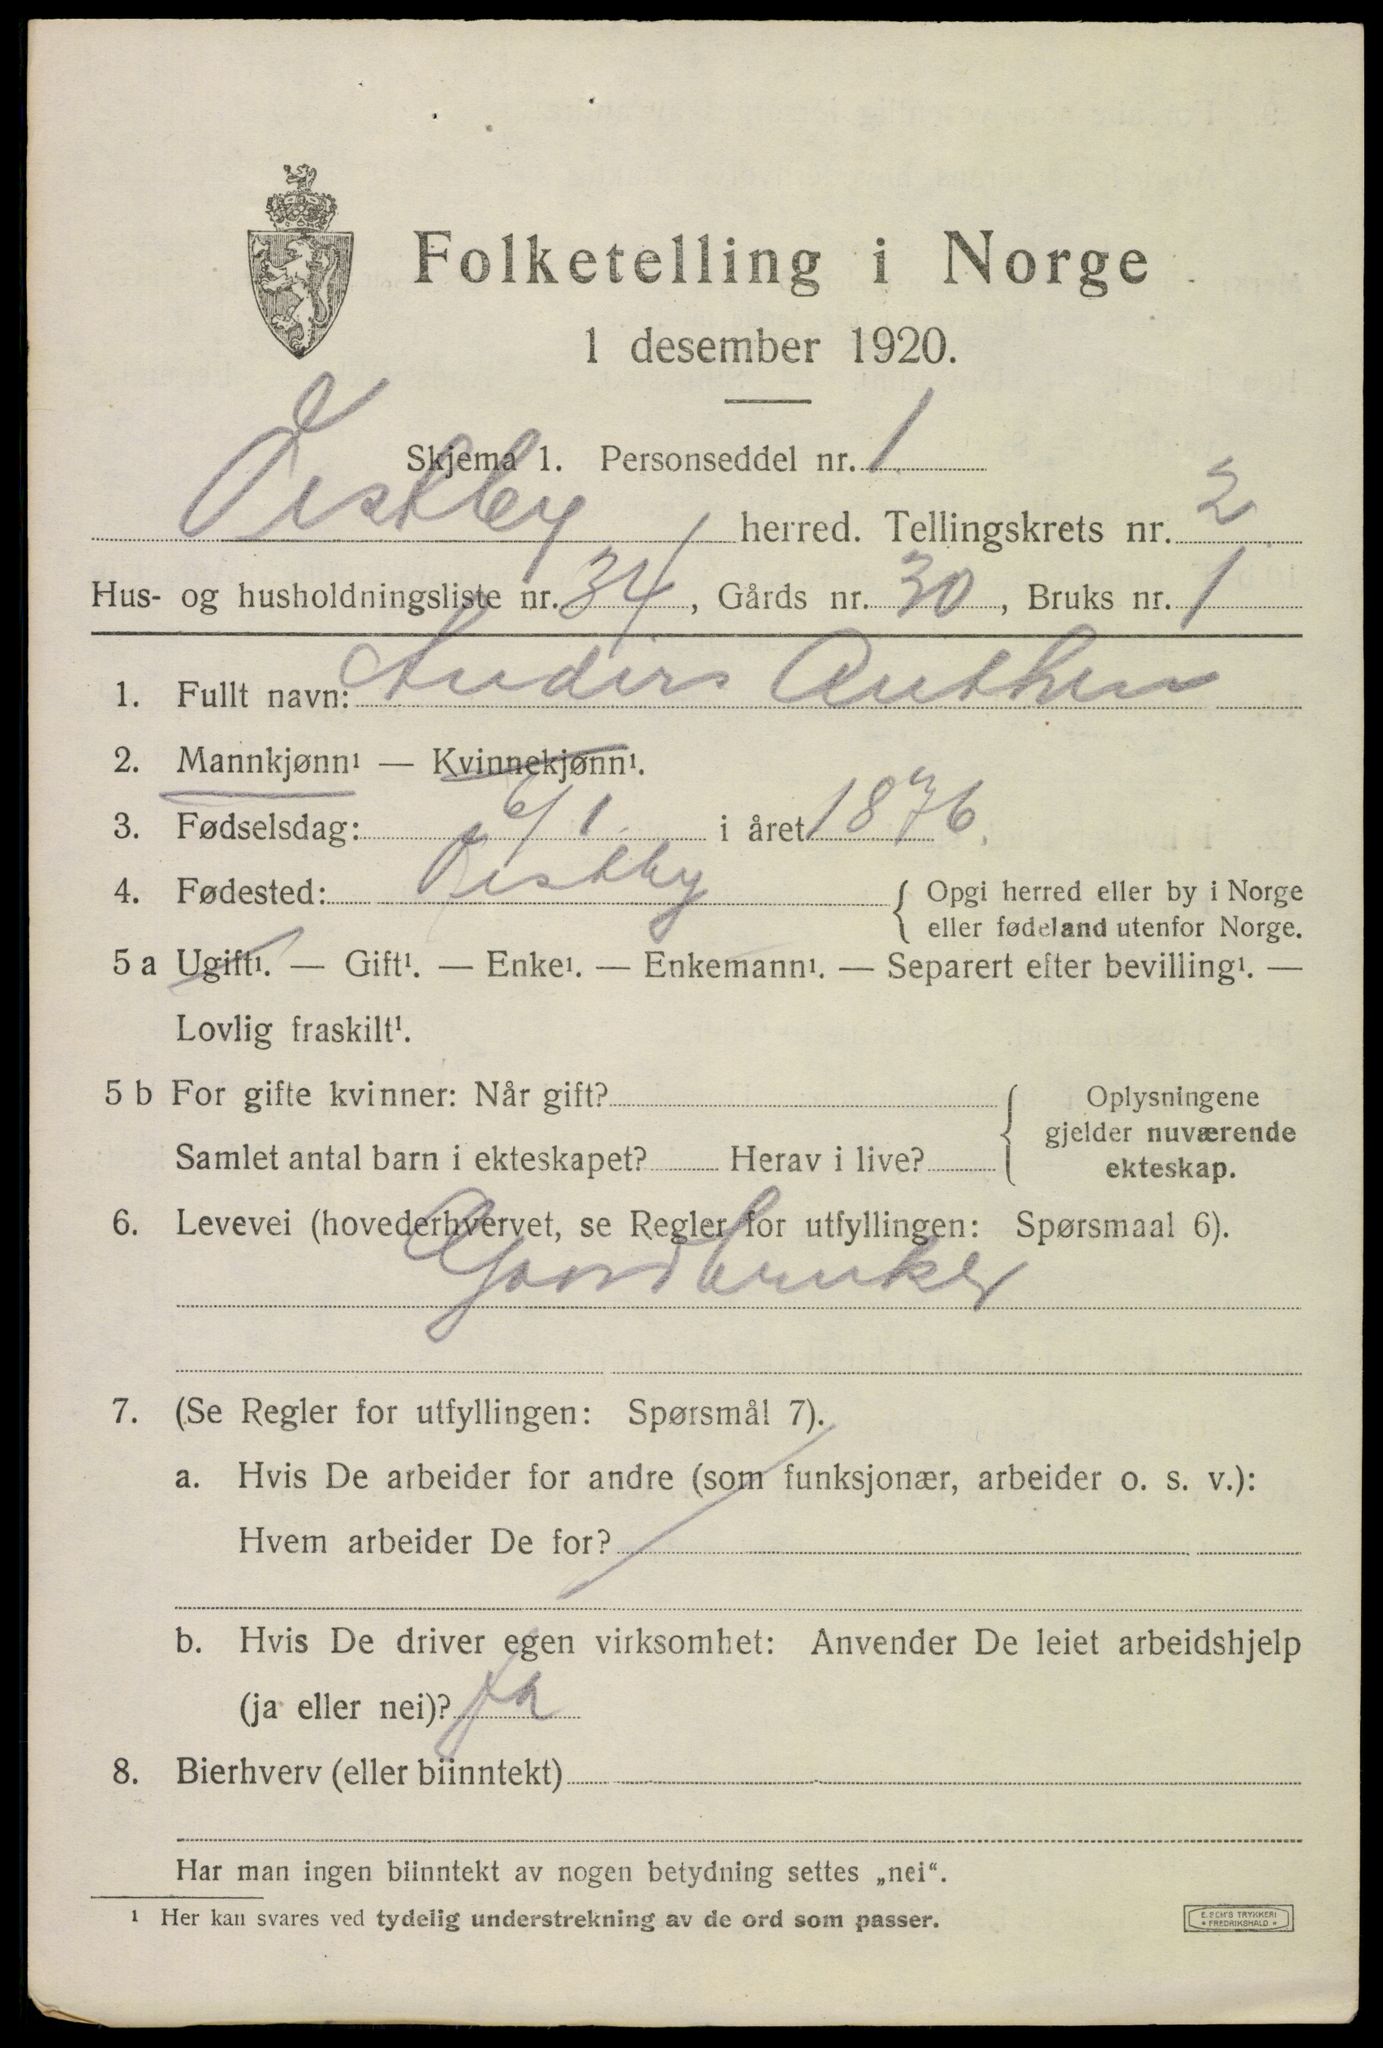 Folketelling i Norge
1 desember 1920.
Skjema 1. Personseddel nr. 1
Vestby herred. Tellingskrets nr. 2
Hus- og husholdningsliste nr. 34, Gårds nr. 30, Bruks nr. 1
1. Fullt navn: Anders Authen
2. Mannkjønn¹ — Kvinnekjønn¹.
3. Fødselsdag: 6/1 i året 1876.
4. Fødested: Vestby { Opgi herred eller by i Norge
eller fødeland utenfor Norge.
5 a Ugift¹. — Gift¹. — Enke¹. — Enkemann¹. — Separert efter bevilling¹. —
Lovlig fraskilt¹.
5 b For gifte kvinner: Når gift? { Oplysningene
gjelder nuværende
Samlet antal barn i ekteskapet? Herav i live? ekteskap.
6. Levevei (hovederhvervet, se Regler for utfyllingen: Spørsmaal 6).
Gaardbruker
7. (Se Regler for utfyllingen: Spørsmål 7).
a. Hvis De arbeider for andre (som funksjonær, arbeider o. s. v.):
Hvem arbeider De for?
b. Hvis De driver egen virksomhet: Anvender De leiet arbeidshjelp
(ja eller nei)? ja
8. Bierhverv (eller biinntekt)
Har man ingen biinntekt av nogen betydning settes „nei“.
¹ Her kan svares ved tydelig understrekning av de ord som passer.
E. SEM'S TRYKKERI
* FREDRIKSHALD *